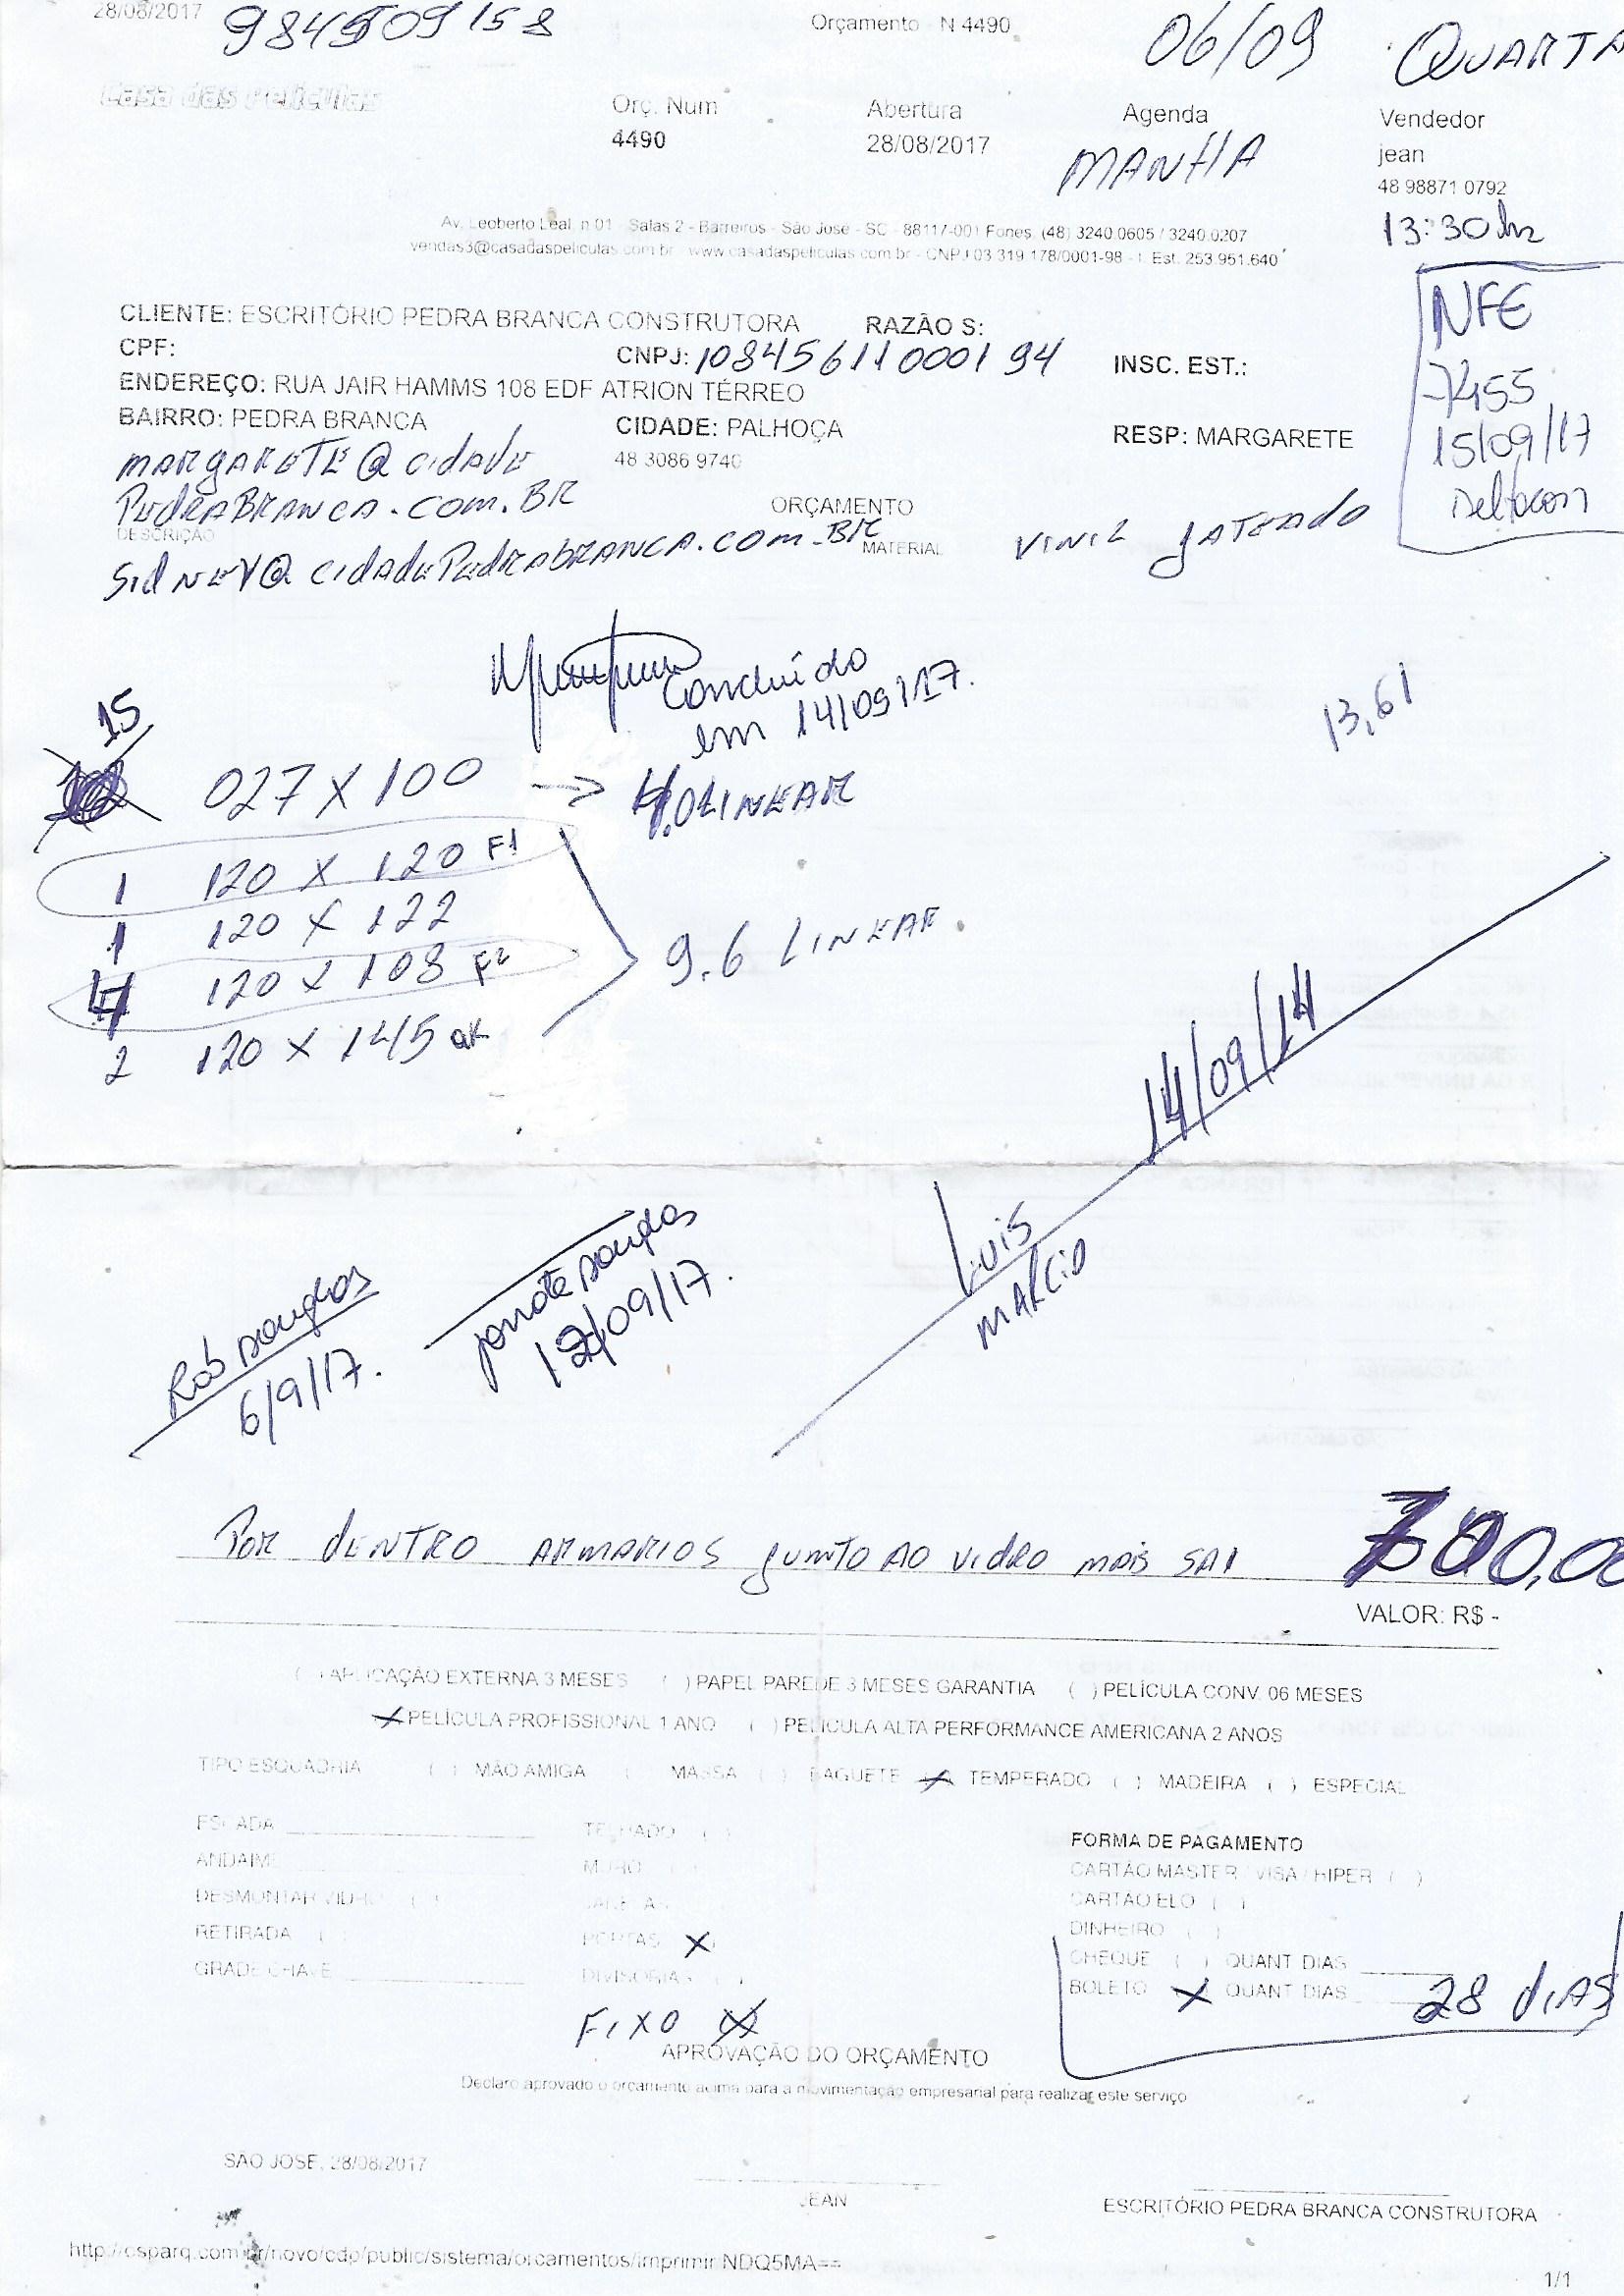 28/08/2017
Orçamento - N 4490
06/09 QUARTA
Casa das Peliculas
Orç. Num
4490
Abertura
28/08/2017
Agenda
MANHA
Vendedor
jean
48 98871 0792
13:30 hr
Av. Leoberto Leal n 01 - Salas 2 - Barreiros - São José - SC - 88117-001 Fones. (48) 3240.0605 / 3240.0207
vendas3@casadaspeliculas.com.br - www.casadaspeliculas.com.br - CNPJ 03.319.178/0001-98 - I. Est. 253.951.640
NFE
15/09/17
CLIENTE: ESCRITÓRIO PEDRA BRANCA CONSTRUTORA RAZÃO S:
CPF: CNPJ: 10845611000194 INSC. EST.:
ENDEREÇO: RUA JAIR HAMMS 108 EDF ATRION TÉRREO
BAIRRO: PEDRA BRANCA CIDADE: PALHOÇA RESP: MARGARETE
48 3086 9740
MARGARETE@CIDADE
PEDRABRANCA.COM.BR
ORÇAMENTO
DESCRIÇÃO MATERIAL VINIL JATEADO
SIDNEY@CIDADEPEDRABRANCA.COM.BR
Concluído
em 14/09/17.
13,61
15
027 X 100 → LINEAR
1 120 X 120 F1
1 120 X 122
120 X 108 F2
2 120 X 145 OK
9.6 LINEAR.
14/09/14
LUIS
MARCIO
6/9/17.
12/09/17.
POR DENTRO ARMARIOS JUNTO AO VIDRO MAIS SAI
700,00
VALOR: R$ -
( ) APLICAÇÃO EXTERNA 3 MESES ( ) PAPEL PAREDE 3 MESES GARANTIA ( ) PELÍCULA CONV. 06 MESES
(X) PELÍCULA PROFISSIONAL 1 ANO ( ) PELÍCULA ALTA PERFORMANCE AMERICANA 2 ANOS
TIPO ESQUADRIA ( ) MÃO AMIGA ( ) MASSA ( ) BAGUETE (X) TEMPERADO ( ) MADEIRA ( ) ESPECIAL
ESCADA TELHADO ( )
ANDAIME MURO ( )
DESMONTAR VIDRO ( ) JANELAS ( )
RETIRADA ( ) PORTAS X
GRADE CHAVE DIVISORIAS ( )
FIXO (X)
FORMA DE PAGAMENTO
CARTÃO MASTER / VISA / HIPER ( )
CARTÃO ELO ( )
DINHEIRO ( )
CHEQUE ( ) QUANT DIAS
BOLETO X QUANT DIAS 28 DIAS
APROVAÇÃO DO ORÇAMENTO
Declaro aprovado o orçamento acima para a movimentação empresarial para realizar este serviço
SÃO JOSE, 28/08/2017
JEAN
ESCRITÓRIO PEDRA BRANCA CONSTRUTORA
http://osparq.com.br/novo/cdp/public/sistema/orcamentos/imprimir/NDQ5MA==
1/1